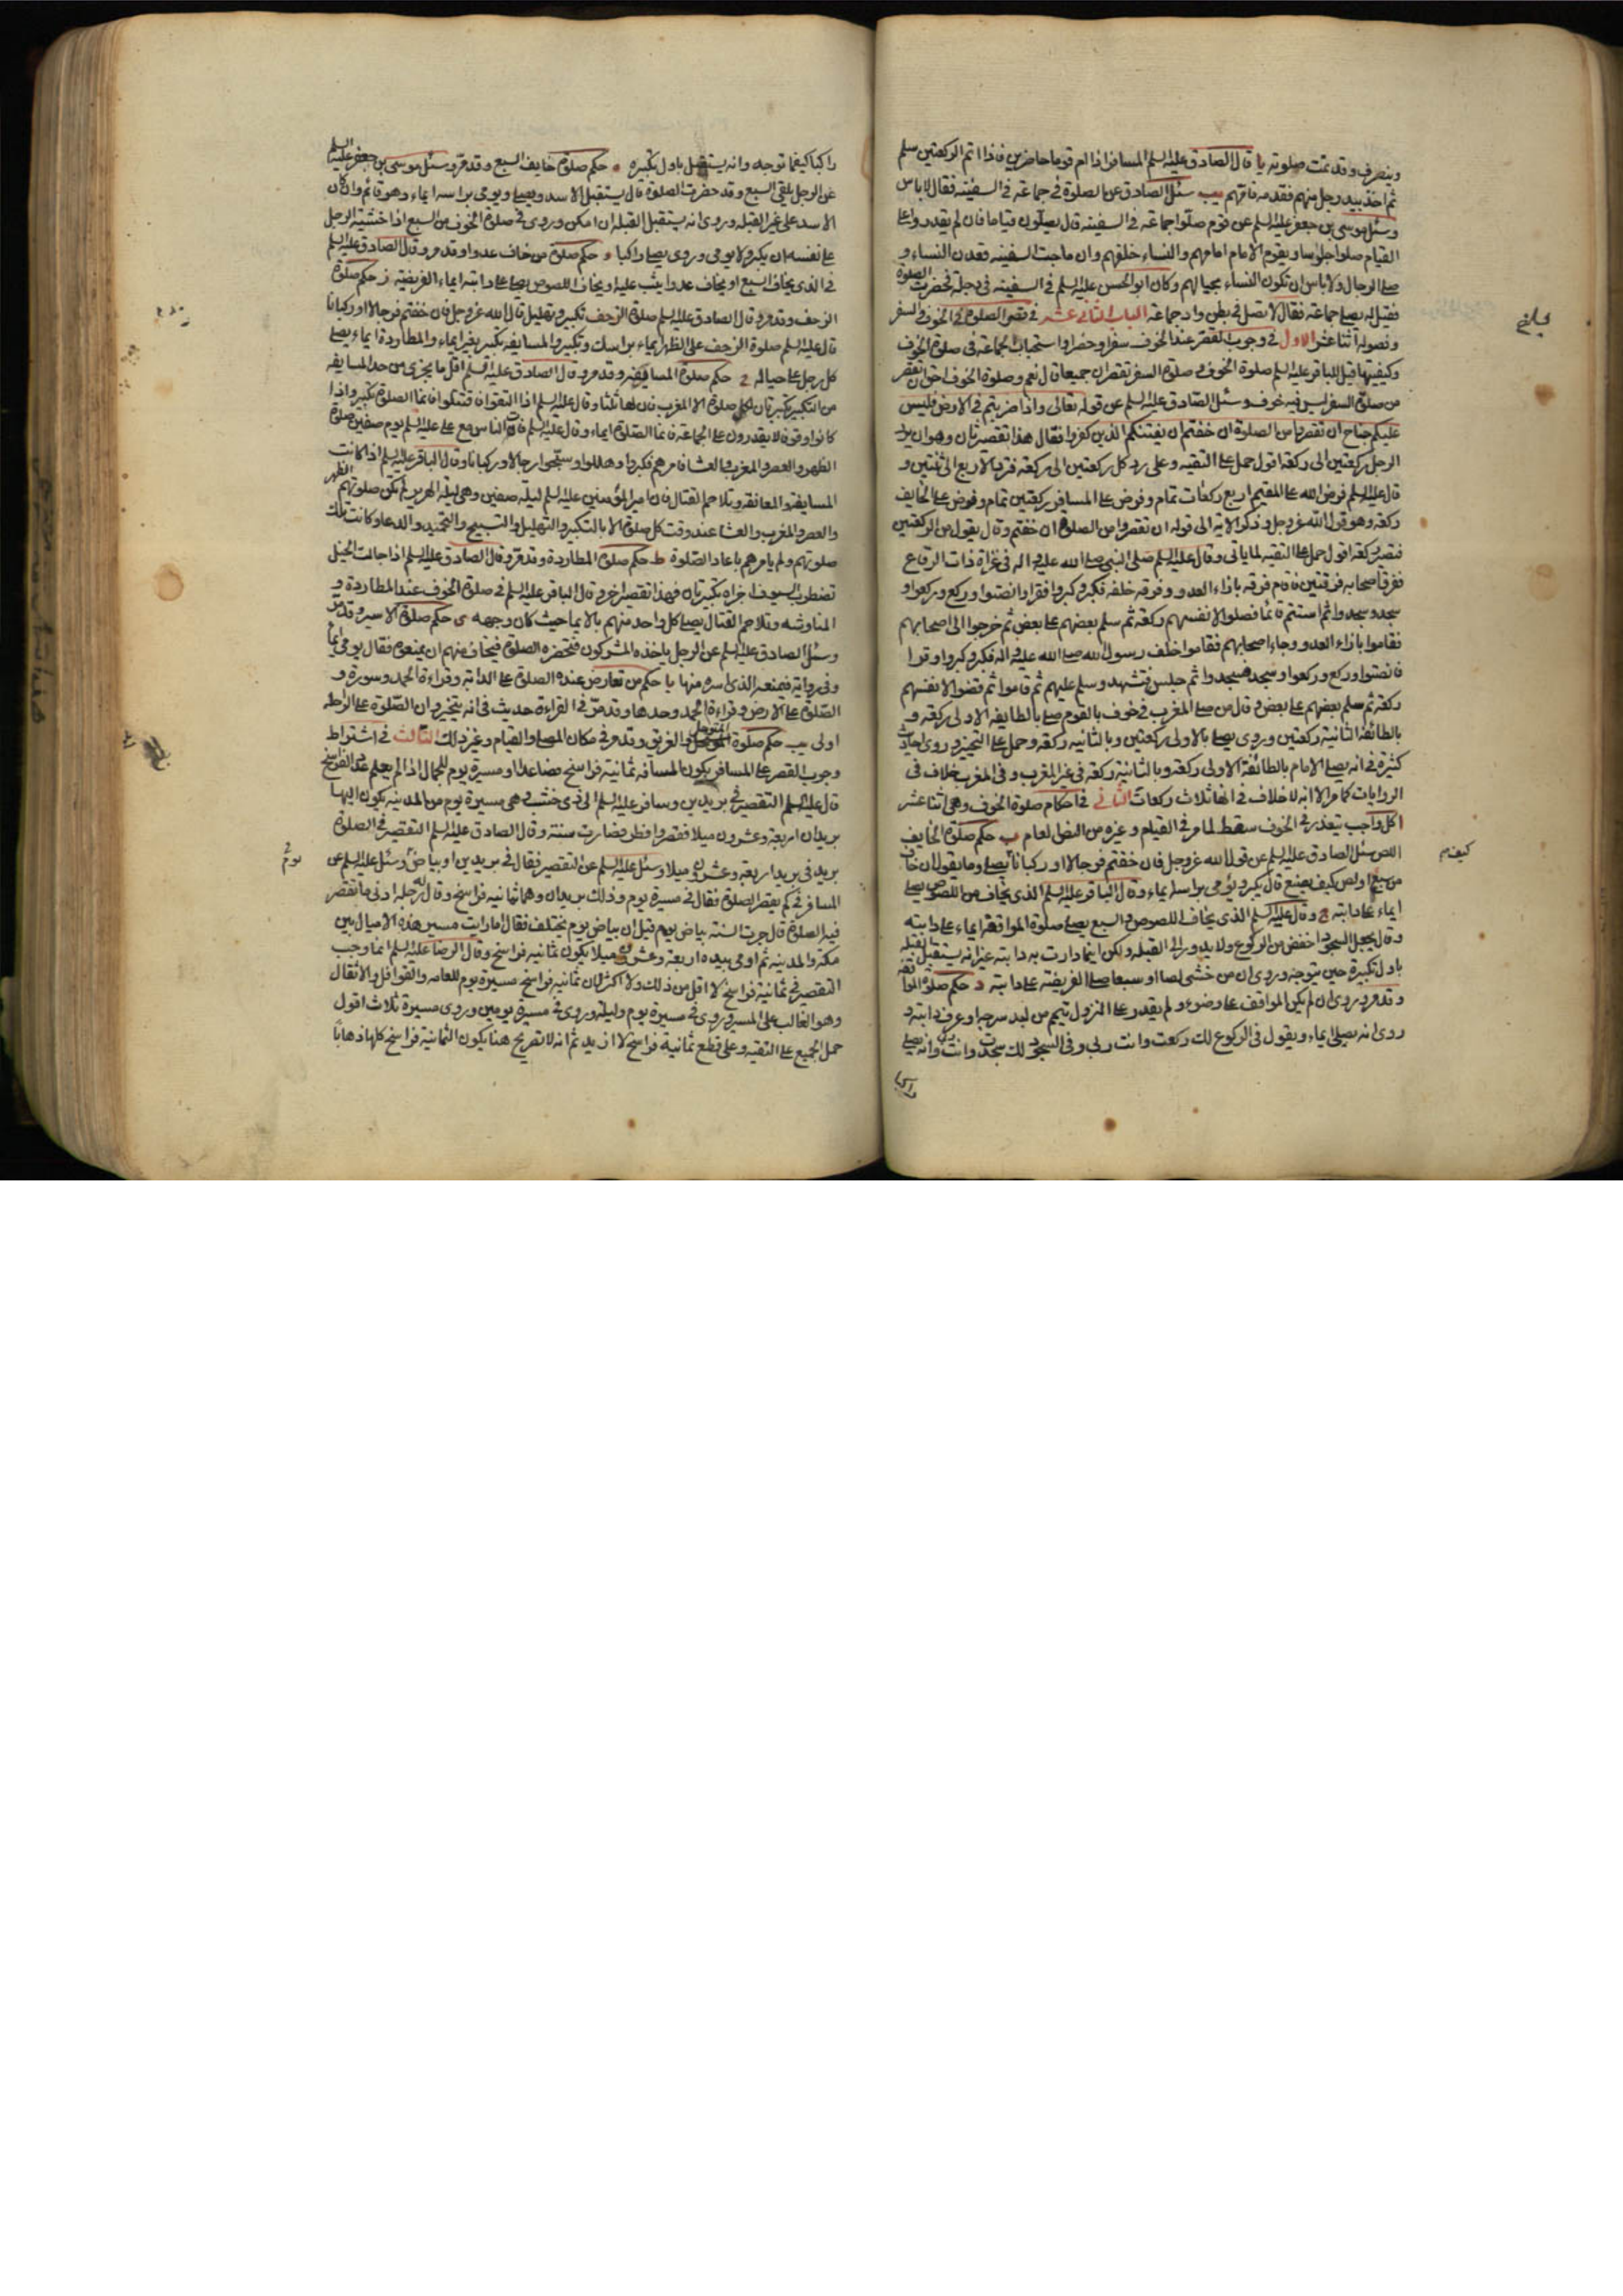 وينصرف وقد تمت صلوته يا قال الصادق عليه السلم المسافر اذا ام قوما حاضرين فاذا اتم الركعتين سلم
ثم اخذ بيد رجل منهم فقدمه فامهم يب سئل الصادق عن الصلوة في جماعة في السفينة فقال لا باس
وسئل موسى بن جعفر عليه السلم عن قوم صلوا جماعة في السفينة قال يصلون قياما فان لم يقدروا على
القيام صلوا جلوسا ويقوم الامام امامهم والنساء خلفهم وان ماجت السفينه قعدن النساء و
صلى الرجال ولا باس ان تكون النساء بحيالهم وكان ابو الحسن عليه السلم في السفينه في دجلة فحضرت الصلوة
فقيل له يصلى جماعة فقال لا تصل في بطن واد جماعة الباب الثاني عشر في قصر الصلوة في الخوف والسفر
وفصوله اثنا عشر الاول في وجوب القصر عند الخوف سفرا وحضرا واستحباب الجماعة في صلوة الخوف
وكيفيتها قيل للباقر عليه السلم صلوة الخوف وصلوة السفر تقصران جميعا قال نعم وصلوة الخوف احق ان تقصر
من صلوة السفر ليس فيه خوف وسئل الصادق عليه السلم عن قوله تعالى واذا ضربتم في الارض فليس
عليكم جناح ان تقصروا من الصلوة ان خفتم ان يفتنكم الذين كفروا فقال هذا تقصير ثان وهو ان يرد
الرجل ركعتين الى ركعة اقول حمل على التقيه وعلى رد كل ركعتين الى ركعة فترد الاربع الى ثنتين و
قال عليه السلم فرض الله على المقيم اربع ركعات تمام وفرض على المسافر ركعتين تمام وفرض على الخايف
ركعة وهو قول الله عز وجل وذكر الاية الى قوله ان تقصروا من الصلوة ان خفتم وقال يقول من الركعتين
فتصير ركعة اقول حمل على التقيه لما ياتي وقال عليه السلم صلى النبي صلى الله عليه واله في غزاة ذات الرقاع
ففرق اصحابه فرقتين فاقام فرقه بازاء العدو وفرقه خلفه فكبر وكبروا فقرا وانصتوا وركع وركعوا و
سجد وسجدوا ثم استتم قائما فصلوا لانفسهم ركعة ثم سلم بعضهم على بعض ثم خرجوا الى اصحابهم
فقاموا بازاء العدو وجاء اصحابهم فقاموا خلف رسول الله صلى الله عليه واله فكبر وكبروا وقرا
فانصتوا وركع وركعوا وسجد فسجدوا ثم جلس فتشهد وسلم عليهم ثم قاموا ثم قضوا لانفسهم
ركعة ثم سلم بعضهم على بعض وقال من صلى المغرب في خوف بالقوم صلى بالطايفه الاولى ركعه و
بالطائفة الثانية ركعتين وروى يصلى بالاولى ركعتين وبالثانيه ركعة وحمل على التخيير وروى احاديث
كثيرة في انه يصلى الامام بالطائفة الاولى ركعة وبالثانية ركعة في غير المغرب وفي المغرب خلاف في
الروايات كما مر الا انه لا خلاف في انها ثلاث ركعات الثاني في احكام صلوة الخوف وهي اثنا عشر
ا كل واجب يتعذر في الخوف سقط لما مر في القيام وغيره من النص العام ب حكم صلوة الخايف
اللص سئل الصادق عليه السلم عن قول الله عز وجل فان خفتم فرجالا او ركبانا يصلى وما يقول ان خاف
من سبع او لص كيف يصنع قال يكبر ويومى براسه ايماء وقال الباقر عليه السلم الذي يخاف من اللصوص يصلى
ايماء على دابته ج وقال عليه السلم الذي يخاف اللصوص والسبع يصلى صلوة المواقفه ايماء على دابته
وقال يجعل السجود اخفض من الركوع ولا يدور الى القبله ولكن اينما دارت به دابته غير انه يستقبل القبله
باول تكبيرة حين يتوجه وروى ان من خشى لصا او سبعا صلى الفريضة على دابته د حكم صلوة المواقفه
وقد مر وروى ان لم يكن المواقف على وضوء ولم يقدر على النزول تيمم من لبد سرجه او عرف دابته و
روى انه يصلى ايماء ويقول في الركوع لك ركعت وانت ربي وفي السجود لك سجدت وانت وانه يصلى
كيف م
راكبا كيفما توجه وانه يستقبل باول تكبيره ه حكم صلوة خايف السبع وقد مر وسئل موسى بن جعفر عليه السلم
عن الرجل يلقى السبع وقد حضرت الصلوة قال يستقبل الاسد ويصلى ويومى براسه ايماء وهو قائم وان كان
الاسد على غير القبله وروى انه يستقبل القبله ان امكن وروى في صلوة الخوف من السبع اذا خشيه الرجل
على نفسه ان يكبر ولا يومى وروى يصلى راكبا و حكم صلوة من خاف عدوا وقد مر وقال الصادق عليه السلم
في الذي يخاف السبع او يخاف عدوا يثب عليه او يخاف اللصوص يصلى على دابته ايماء الفريضه ز حكم صلوة
الزحف وقد مر وقال الصادق عليه السلم صلوة الزحف تكبير وتهليل قال الله عز وجل فان خفتم فرجالا او ركبانا
قال عليه السلم صلوة الزحف على الظهر ايماء براسك وتكبير والمسايفه تكبير بغير ايماء والمطاردة ايماء يصلى
كل رجل على حياله ح حكم صلوة المسايفه وقد مر وقال الصادق عليه السلم اقل ما يجزى من حد المسايفه
من التكبير تكبيرتان لكل صلوة الا المغرب فان لها ثلثا وقال عليه السلم اذا التقوا فاقتتلوا فانما الصلوة تكبير واذا
كانوا وقوفا لا يقدرون على الجماعة فانما الصلوة ايماء وقال عليه السلم فات الناس مع على عليه السلم يوم صفين صلوة
الظهر والعصر والمغرب والعشا فامرهم فكبروا وهللوا وسبحوا رجالا وركبانا وقال الباقر عليه السلم اذا كانت
المسايفة والمعانقة وتلاحم القتال فان امير المؤمنين عليه السلم ليلة صفين وهي ليلة الهرير لم تكن صلوتهم الظهر
والعصر والمغرب والعشا عند وقت كل صلوة الا بالتكبير والتهليل والتسبيح والتحميد والدعا وكانت تلك
صلوتهم ولم يامرهم باعادة الصلوة ط حكم صلوة المطاردة وقد مر وقال الصادق عليه السلم اذا جالت الخيل
تضطرب السيوف اجزاه تكبيرتان فهذا تقصير اخر وقال الباقر عليه السلم في صلوة الخوف عند المطاردة و
المناوشه وتلاحم القتال يصلى كل واحد منهم بالايما حيث كان وجهه ى حكم صلوة الاسير وقد مر
وسئل الصادق عليه السلم عن الرجل ياخذه المشركون فتحضره الصلوة فيخاف منهم ان يمنعوه فقال يومى ايما
وفي رواية فيمنعه الذي اسره منها يا حكم من تعارض عنده الصلوة على الدابة وقراءة الحمد وسورة و
الصلوة على الارض وقراءة الحمد وحدها وقد مر في القراءة حديث في انه يتخير وان الصلوة على الراحله
اولى يب حكم صلوة المتوحل والغريق وقد مر في مكان المصلى والقيام وغير ذلك الثالث في اشتراط
وجوب القصر على المسافر بكون المسافه ثمانية فراسخ فصاعدا او مسيرة يوم للجمال اذا لم يعلم عدد الفراسخ
قال عليه السلم التقصير في بريدين وسافر عليه السلم الى ذي خشب وهي مسيرة يوم من المدينه يكون اليها
بريدان اربعة وعشرون ميلا فقصر وافطر فصارت سنة وقال الصادق عليه السلم التقصير في الصلوة
بريد في بريد اربعة وعشرون ميلا وسئل عليه السلم عن التقصير فقال في بريدين او بياض وسئل عليه السلم عن
المسافر في كم يقصر الصلوة فقال في مسيرة يوم وذلك بريدان وهما ثمانيه فراسخ وقال له رجل ادنى ما تقصر
فيه الصلوة قال جرت السنة بياض يوم فقيل ان بياض يوم يختلف فقال اما رايت مسير هذه الاميال بين
مكة والمدينه ثم اومى بيده اربعة وعشرون ميلا يكون ثمانيه فراسخ وقال الرضا عليه السلم انما وجب
التقصير في ثمانية فراسخ لا اقل من ذلك ولا اكثر لان ثمانية فراسخ مسيرة يوم للعامه والقوافل والاثقال
وهو الغالب على المسير وروى في مسيرة يوم وليلة وروى في مسيرة يومين وروى مسيرة ثلاث اقول
حمل الجميع على التقيه وعلى قطع ثمانية فراسخ لا ازيد ثم انه لا تصريح هنا بكون الثمانية فراسخ كلها ذهابا
يوم